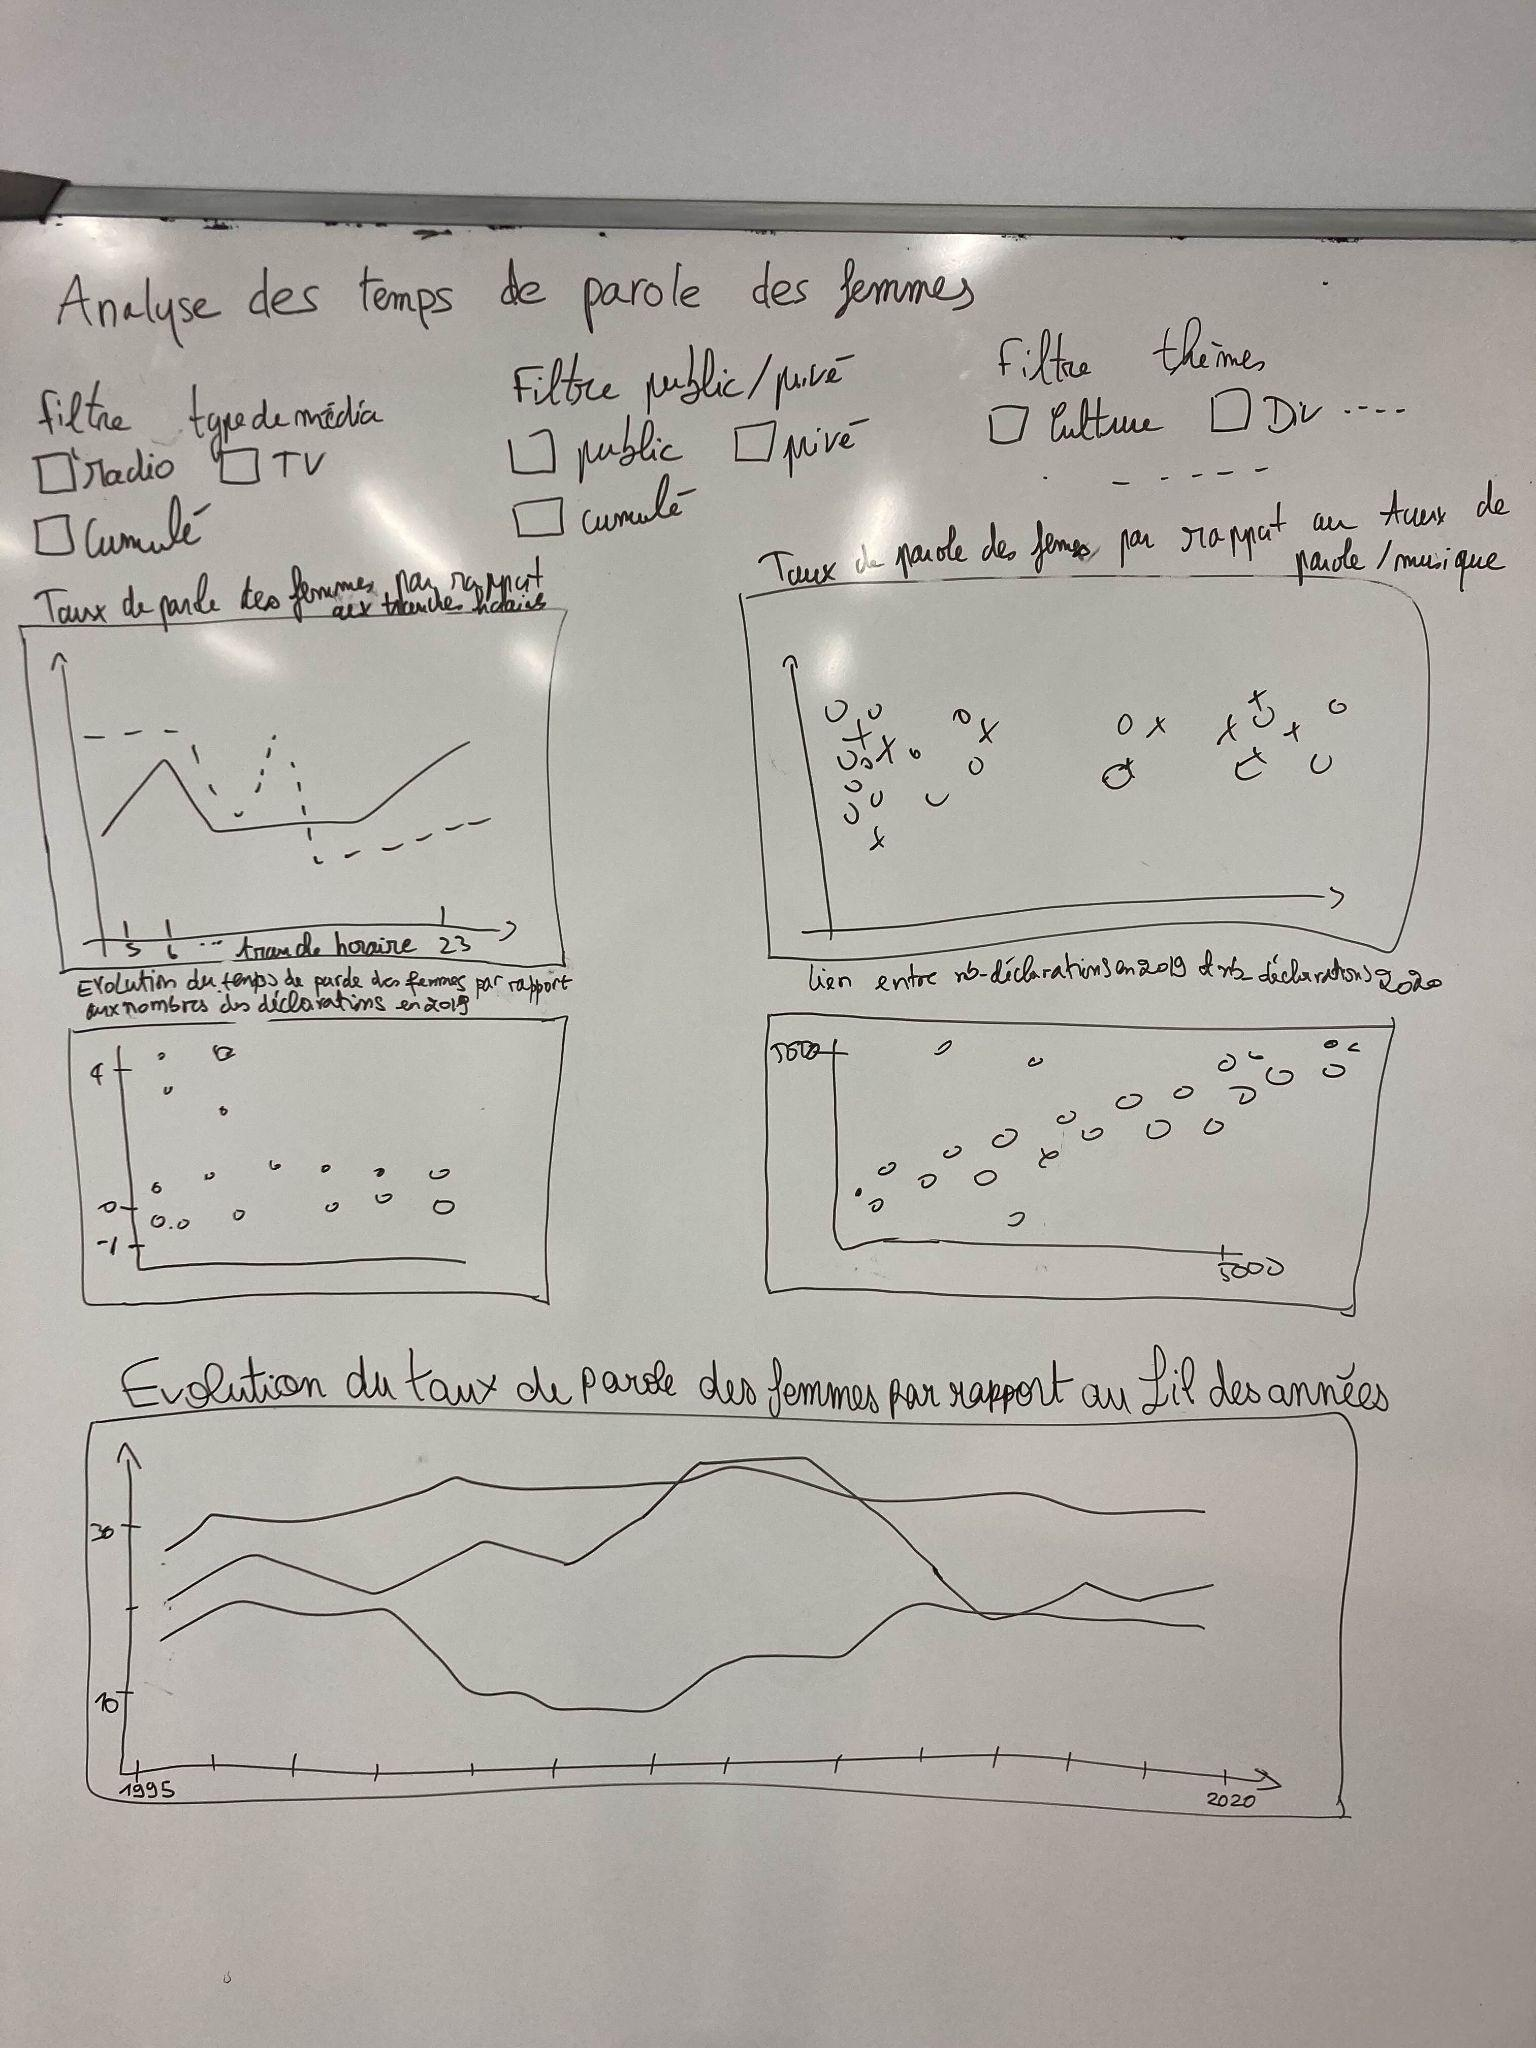 Analyse des temps de parole des femmes
Filtre type de média
radio TV
Cumulé
Filtre public/privé
public privé
cumulé
Filtre thèmes
Culture Div ....
Taux de parole des femmes par rapport
aux tranches horaires
5 6 ... tranche horaire 23
Taux de parole des femes par rapport au taux de
parole/musique
Evolution du temps de parole des femmes par rapport
aux nombres des déclarations en 2019
4
0
-1
Lien entre nb-déclarations en 2019 et nb déclarations 2020
5000
5000
Evolution du taux de parole des femmes par rapport au fil des années
30
10
1995
2020